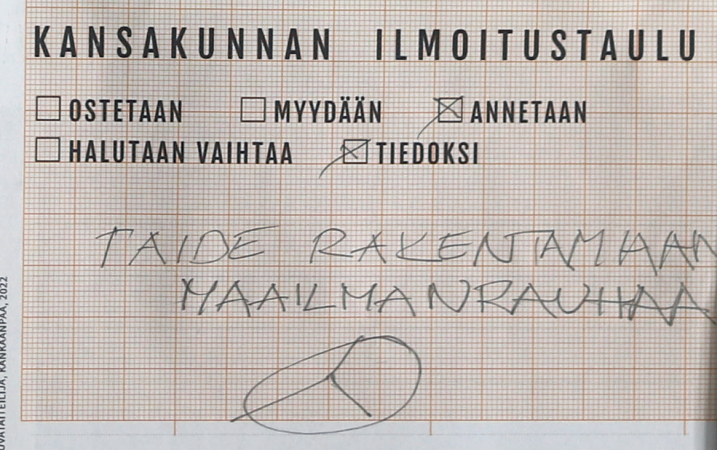 KANSAKUNNAN ILMOITUSTAULU
OSTETAAN MYYDÄÄN ANNETAAN
HALUTAAN VAIHTAA TIEDOKSI
TAIDE RAKENTAMAAN
MAAILMANRAUHAA
KANKAANPÄÄ, 2022